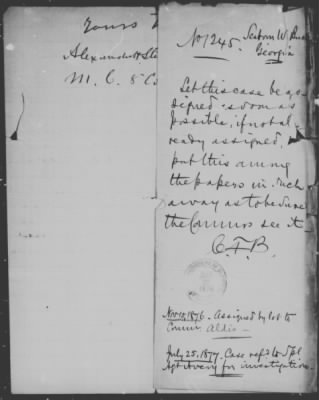 Yours
Alexander H. Ste
M. C. 8th
No 1245. Seaborn W.
Georgia
Let this case be as-
signed as soon as
possible, if not al-
ready assigned,
put this among
the papers in such
a way as to be sure
the Commrs see it
C. F. B.
Nov 10, 1876. Assigned by lot to
Commr Aldis.
July 25, 1877. Case ref'd to Spl
Agt Avery for investigation.